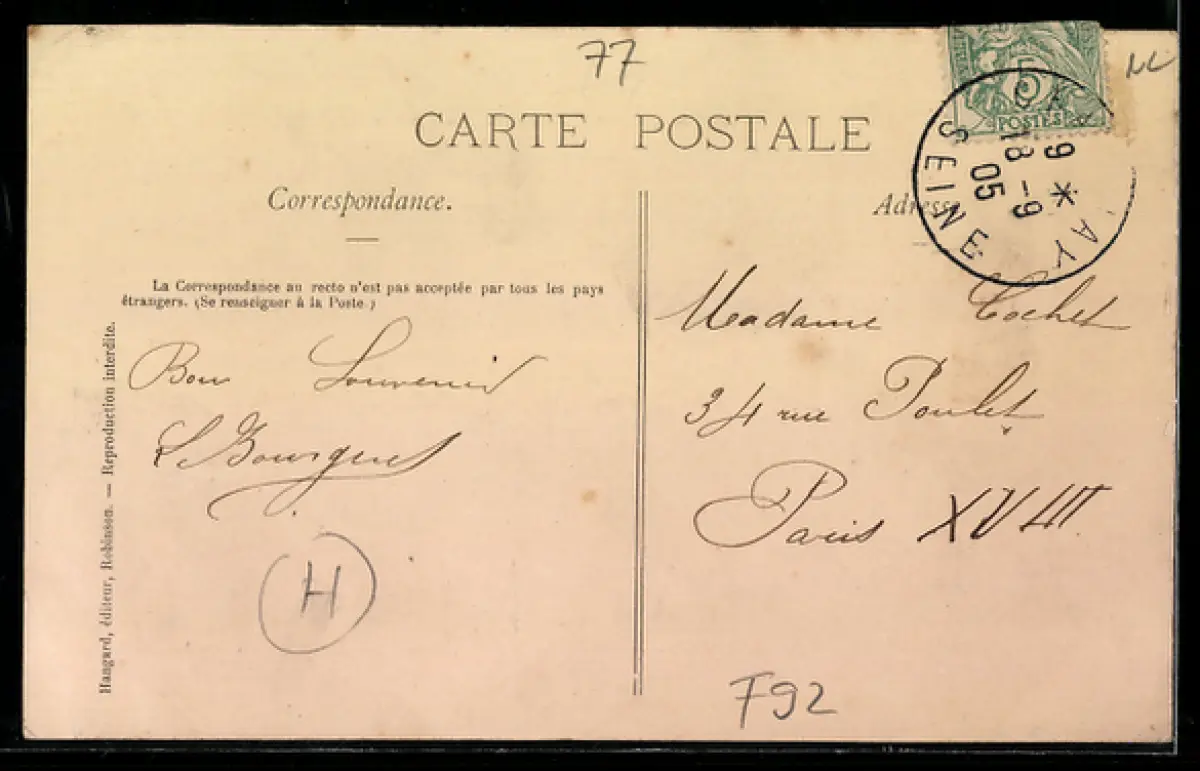 77
CARTE POSTALE
5
POSTES
SEINE
9 *
18 -9
05
AY
Correspondance.
La Correspondance au recto n'est pas acceptée par tous les pays
étrangers. (Se renseigner à la Poste.)
Bon Souvenir
Madame Cochet
34 rue Poulet
Paris XVIII
H
F92
Hangard, éditeur, Robinson. — Reproduction interdite.